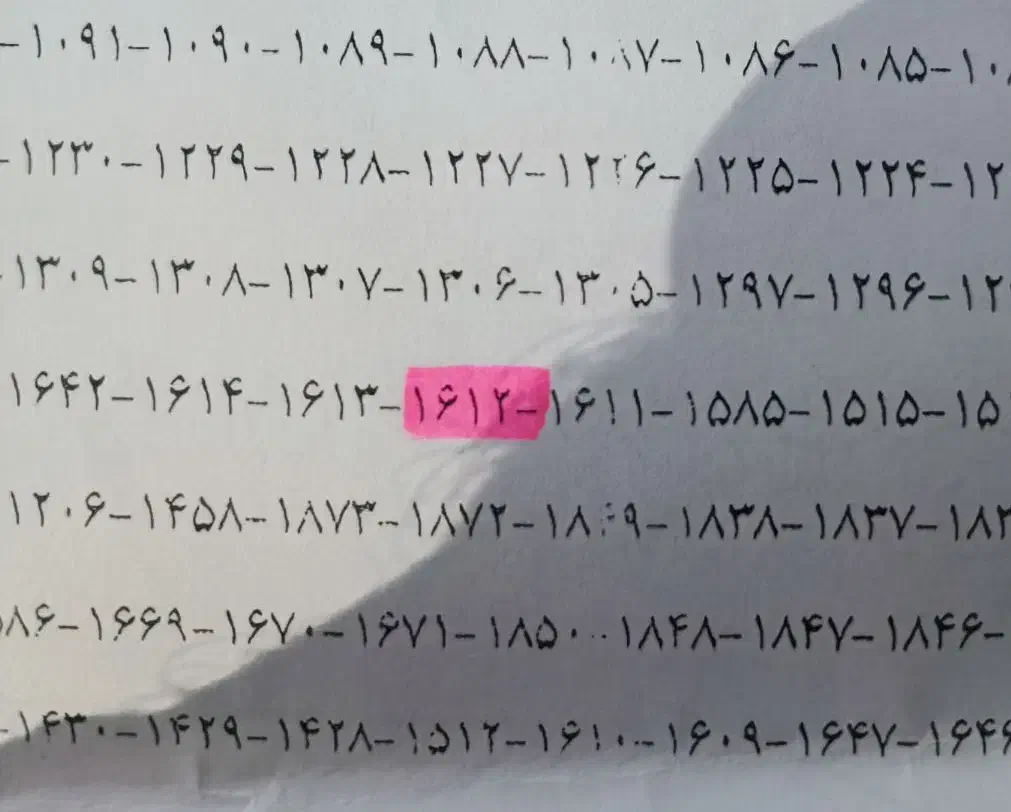 -۱۰۸۵-۱۰۸۶-۱۰۸۷-۱۰۸۸-۱۰۸۹-۱۰۹۰-۱۰۹۱-
-۱۲۲۴-۱۲۲۵-۱۲۲۶-۱۲۲۷-۱۲۲۸-۱۲۲۹-۱۲۳۰-
-۱۲۹۶-۱۲۹۷-۱۳۰۵-۱۳۰۶-۱۳۰۷-۱۳۰۸-۱۳۰۹-
-۱۵۱۵-۱۵۸۵-۱۶۱۱-۱۶۱۲-۱۶۱۳-۱۶۱۴-۱۶۴۲
-۱۸۳۷-۱۸۳۸-۱۸۷۲-۱۸۷۳-۱۴۵۸-۱۲۰۶
-۱۸۴۶-۱۸۴۷-۱۸۴۸-۱۸۵۰-۱۶۷۱-۱۶۷۰-۱۶۶۹-
۱۶۴۶-۱۶۴۷-۱۶۰۹-۱۶۱۰-۱۵۱۲-۱۴۲۸-۱۴۲۹-۱۴۳۰-